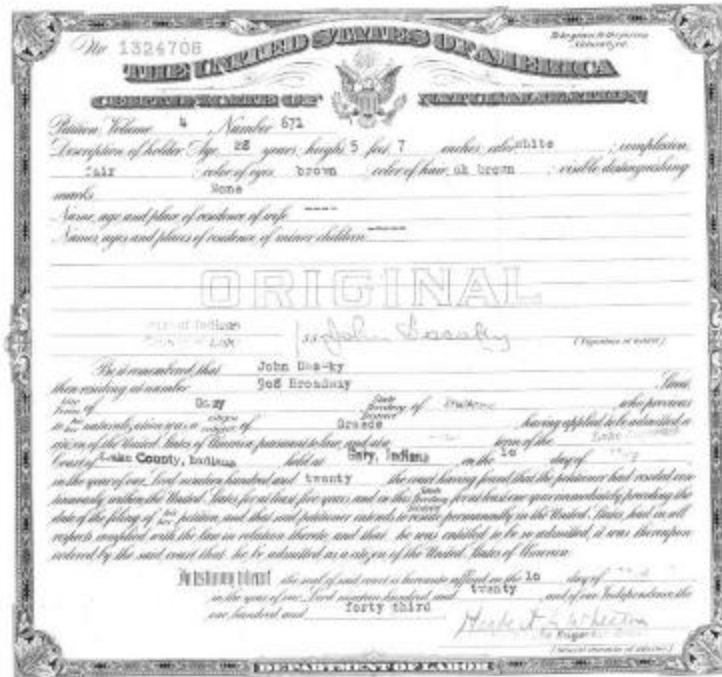 No. 1324708
To be given to the person Naturalized.
THE UNITED STATES OF AMERICA
CERTIFICATE OF NATURALIZATION
Petition, Volume 4, Number 671
Description of holder: Age, 28 years; height, 5 feet, 7 inches; color, white; complexion,
fair; color of eyes, brown; color of hair, dk brown; visible distinguishing
marks, None
Name, age and place of residence of wife ----
Names, ages and places of residence of minor children ----
ORIGINAL
of Indiana
ss: John
(Signature of holder)
Be it remembered, that John
then residing at number 908 Broadway Street,
City Town of Gary State Territory District of Indiana, who previous
to his her naturalization was a citizen subject of Greece, having applied to be admitted a
citizen of the United States of America pursuant to law, and at a term of the Lake
Court of Lake County, Indiana held at Gary, Indiana on the 10 day of
in the year of our Lord nineteen hundred and twenty the court having found that the petitioner had resided con-
tinuously within the United States for at least five years and in this State Territory District for at least one year immediately preceding the
date of the filing of his her petition, and that said petitioner intends to reside permanently in the United States, had in all
respects complied with the law in relation thereto, and that he was entitled to be so admitted, it was thereupon
ordered by the said court that he be admitted as a citizen of the United States of America.
In testimony whereof the seal of said court is hereunto affixed on the 10 day of
in the year of our Lord nineteen hundred and twenty and of our Independence the
one hundred and forty third
(Official character of attestor)
DEPARTMENT OF LABOR